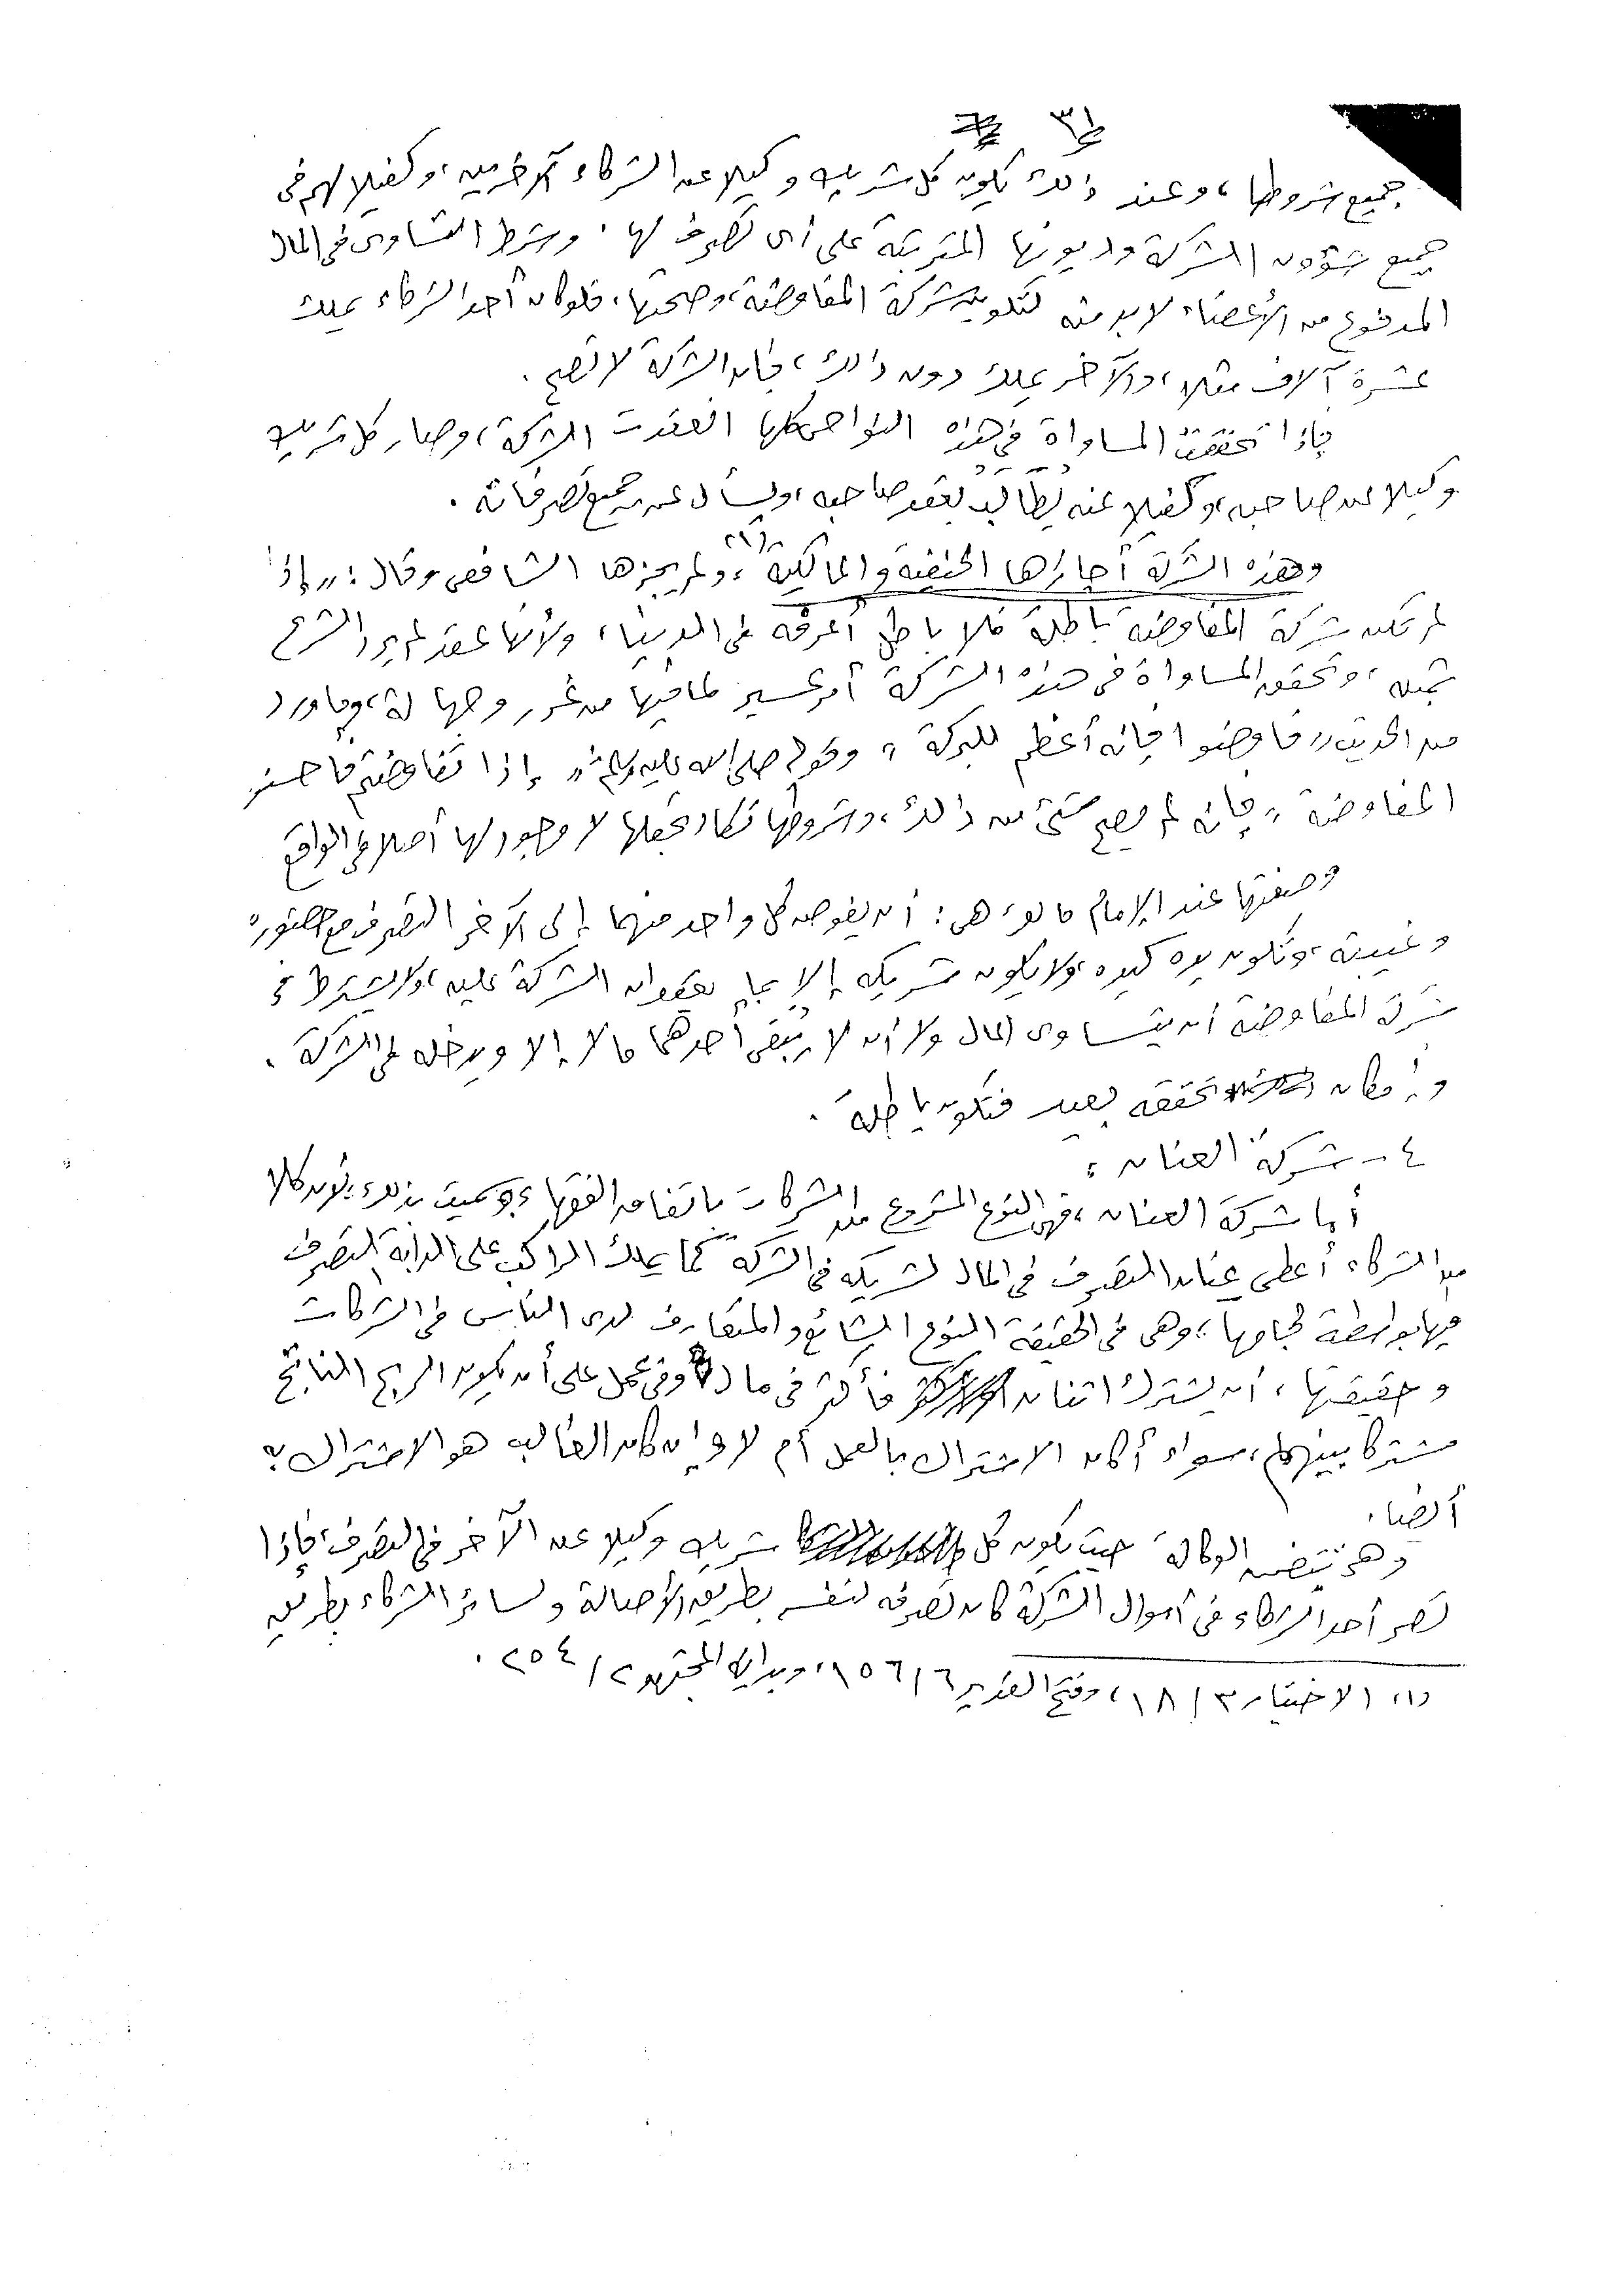 ٣١
جميع شروطها، وعند ذلك يكون كل شريك وكيلا عن الشركاء الآخرين، وكفيلا لهم في
جميع شؤون الشركة وديونها المترتبة على أي تصرف لها. وشرط التساوى في المال
المدفوع من الأعضاء لابد منه لتكوين شركة المفاوضة، وصحتها، فلو كان أحد الشركاء يملك
عشرة آلاف مثلا، والآخر يملك دون ذلك، فإن الشركة لا تصح.
فإذا تحققت المساواة في هذه النواحى كلها انعقدت الشركة، وصار كل شريك
وكيلا عن صاحبه، وكفيلا عنه يُطَالَبُ بعقد صاحبه، ويسأل عن جميع تصرفاته.
وهذه الشركة أجازها الحنفية والمالكية (١)، ولم يجزها الشافعى وقال: "إذا
لم تكن شركة المفاوضة باطلة فلا باطل أعرفه في الدنيا، ولأنها عقد لم يرد الشرع
بمثله، وتحقق المساواة في هذه الشركة أمر عسير لما فيها من غرر وجهالة، وما ورد
من الحديث "فاوضوا فإنه أعظم للبركة" وقوله صلى الله عليه وسلم: "إذا تفاوضتم فأحسنوا
المفاوضة" فإنه لم يصح شيء من ذلك، وشروطها تكاد تجعلها لا وجود لها أصلا في الواقع
وصفتها عند الإمام مالك هى: أن يفوض كل واحد منهما إلى الآخر التصرف مع حضوره
وغيبته، وتكون يده كيده، ولا يكون شريكه إلا بما يعقدان الشركة عليه، ولا يشترط في
شركة المفاوضة أن يتساوى المال ولا أن لا يبقى أحدهما مالا إلا ويدخله في الشركة.
وإن كان تحققه بعيد فتكون باطلة.
٤ - شركة العنان:
أما شركة العنان، فهى النوع المشروع من الشركات باتفاق الفقهاء، وسميت بذلك؛ لأن كلا
من الشركاء أعطى عنان التصرف في المال لشريكه في الشركة كما يملك الراكب على الدابة التصرف
فيها بواسطة لجامها، وهى في الحقيقة النوع الشائع والمتعارف لدى الناس في الشركات
وحقيقتها، أن يشترك اثنان فأكثر في مال وفى عمل على أن يكون الربح الناتج
مشتركا بينهم، سواء أكان الاشتراك بالعمل أم لا وإن كان الغالب هو الاشتراك به
أيضا.
وهى تتضمن الوكالة حيث يكون كل شريك وكيلا عن الآخر في التصرف، فإذا
تصر أحد الشركاء في أموال الشركة كان تصرفه لنفسه بطريق الأصالة ولسائر الشركاء بطريق
(١) الاختيار ٣/١٨، وفتح القدير ٦/١٥٦، وبداية المجتهد ٢/٢٥٤.